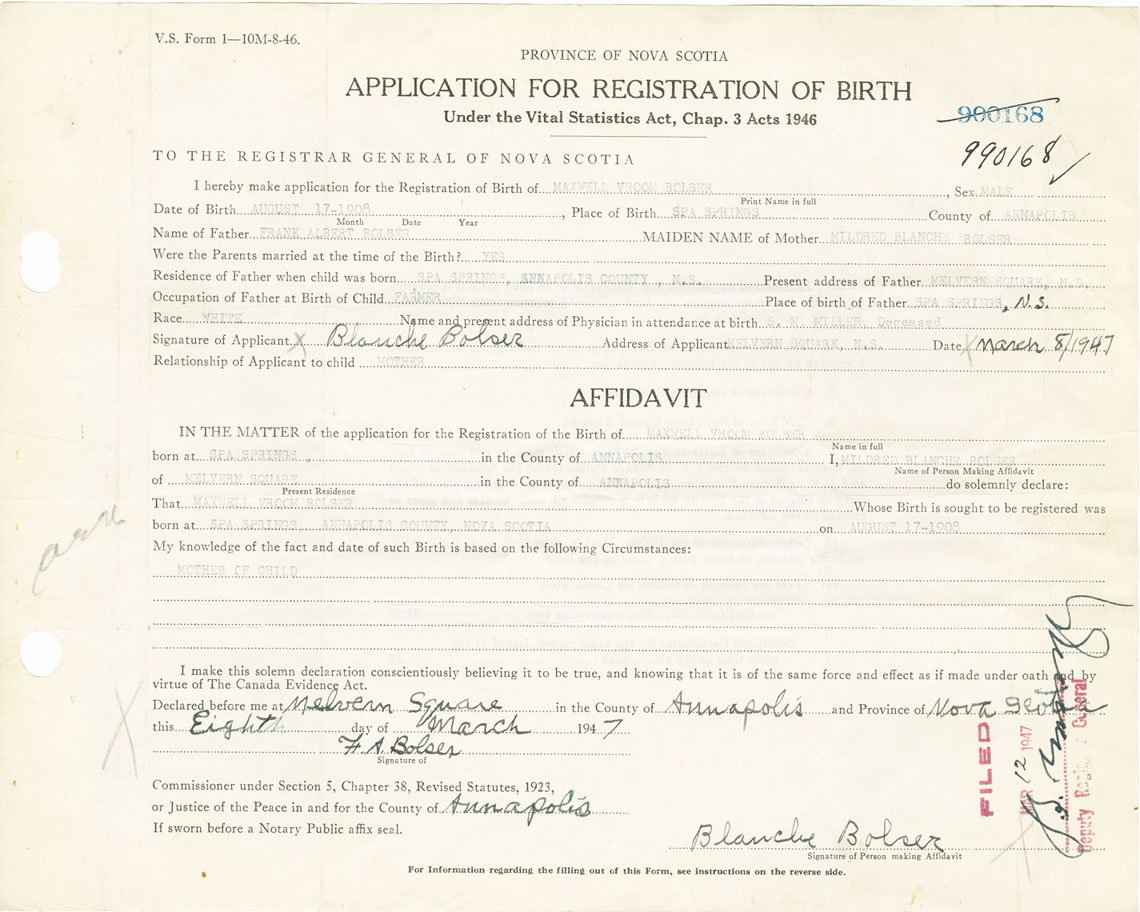 V.S. Form 1—10M-8-46.
PROVINCE OF NOVA SCOTIA
APPLICATION FOR REGISTRATION OF BIRTH
Under the Vital Statistics Act, Chap. 3 Acts 1946
900168
990168
TO THE REGISTRAR GENERAL OF NOVA SCOTIA
I hereby make application for the Registration of Birth of MAXWELL VROOM BOLSER, Sex MALE
Print Name in full
Date of Birth AUGUST 17-1908, Place of Birth SPA SPRINGS County of ANNAPOLIS
Month Date Year
Name of Father FRANK ALBERT BOLSER MAIDEN NAME of Mother MILDRED BLANCHE BOLSER
Were the Parents married at the time of the Birth? YES
Residence of Father when child was born SPA SPRINGS, ANNAPOLIS COUNTY, N.S. Present address of Father MELVERN SQUARE, N.S.
Occupation of Father at Birth of Child FARMER Place of birth of Father SPA SPRINGS, N.S.
Race WHITE Name and present address of Physician in attendance at birth MILLER Deceased
Signature of Applicant X Blanche Bolser Address of Applicant MELVERN SQUARE, N.S. Date X March 8/1947
Relationship of Applicant to child MOTHER
AFFIDAVIT
IN THE MATTER of the application for the Registration of the Birth of MAXWELL VROOM BOLSER
Name in full
born at SPA SPRINGS in the County of ANNAPOLIS I, MILDRED BLANCHE BOLSER
Name of Person Making Affidavit
of MELVERN SQUARE in the County of ANNAPOLIS do solemnly declare:
Present Residence
That MAXWELL VROOM BOLSER Whose Birth is sought to be registered was
born at SPA SPRINGS, ANNAPOLIS COUNTY, NOVA SCOTIA on AUGUST 17-1908
My knowledge of the fact and date of such Birth is based on the following Circumstances:
MOTHER OF CHILD
I make this solemn declaration conscientiously believing it to be true, and knowing that it is of the same force and effect as if made under oath and by
virtue of The Canada Evidence Act.
Declared before me at Melvern Square in the County of Annapolis and Province of Nova Scotia
this Eighth day of March 1947
F. A. Bolser
Signature of
Commissioner under Section 5, Chapter 38, Revised Statutes, 1923,
or Justice of the Peace in and for the County of Annapolis
If sworn before a Notary Public affix seal.
Blanche Bolser
Signature of Person making Affidavit
For Information regarding the filling out of this Form, see instructions on the reverse side.
FILED
MAR 12 1947
Deputy Registrar General